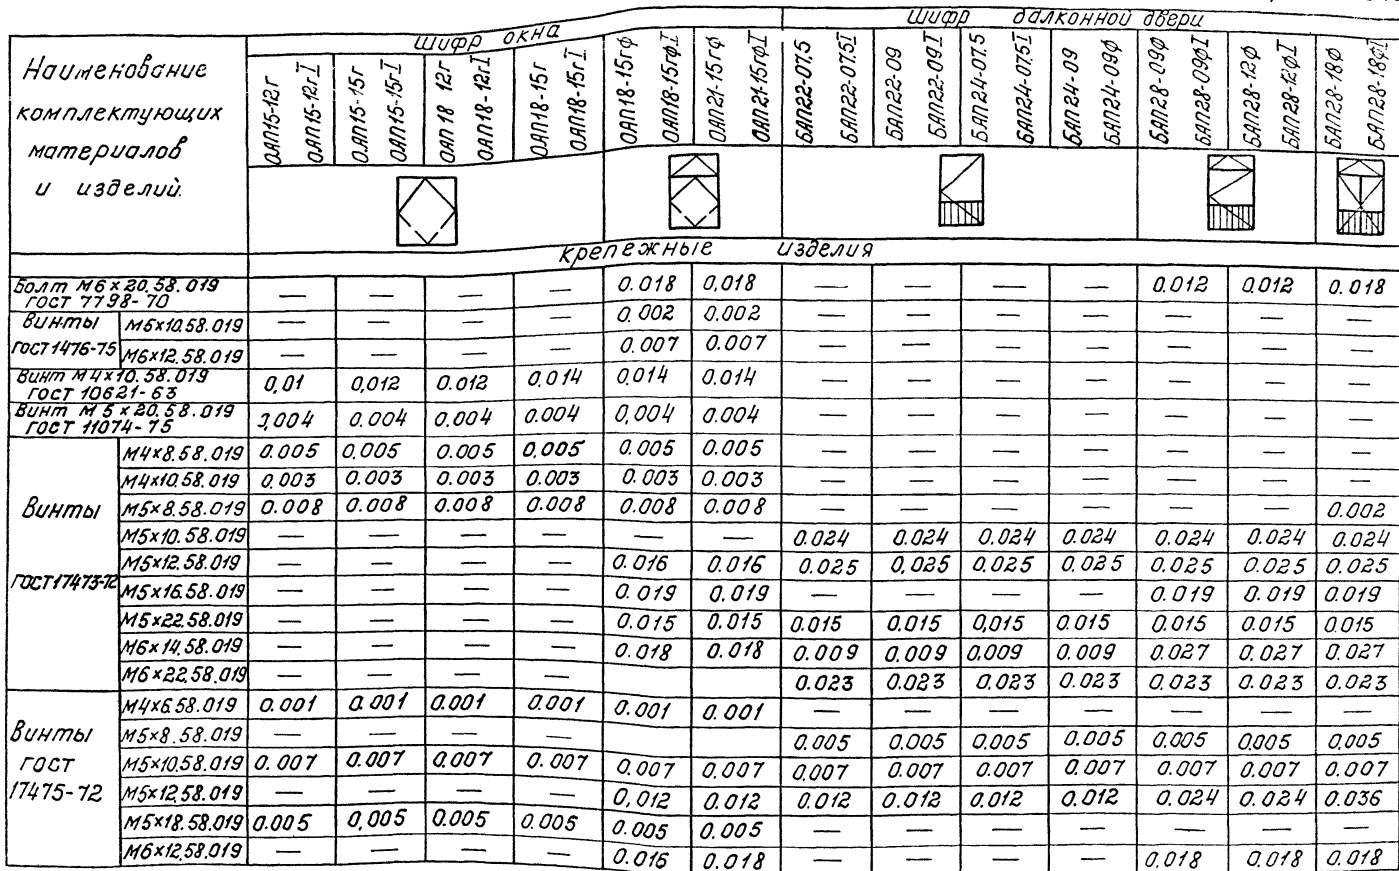 Шифр окна
Шифр балконной двери
Наименование
комплектующих
материалов
и изделий.
ОАП15-12г
ОАП15-12гI
ОАП15-15г
ОАП15-15гI
ОАП18 12г
ОАП18-12гI
ОАП18-15г
ОАП18-15гI
ОАП18-15гф
ОАП18-15гфI
ОАП21-15гф
ОАП21-15гфI
БАП22-07.5
БАП22-07.5I
БАП22-09
БАП22-09I
БАП24-07.5
БАП24-07.5I
БАП24-09
БАП24-09ф
БАП28-09ф
БАП28-09фI
БАП28-12ф
БАП28-12фI
БАП28-18ф
БАП28-18фI
крепежные изделия
Болт М6×20.58.019 ГОСТ 7798-70 — — — — 0.018 0,018 — — — — 0.012 0,012 0.018
Винты ГОСТ 1476-75
М6×10.58.019 — — — — 0.002 0.002 — — — — — — —
М6×12.58.019 — — — — 0.007 0.007 — — — — — — —
Винт М4×10.58.019 ГОСТ 10621-63 0,01 0,012 0.012 0.014 0,014 0.014 — — — — — — —
Винт М5×20.58.019 ГОСТ 11074-75 0,004 0.004 0.004 0.004 0,004 0.004 — — — — — — —
Винты ГОСТ17473-72
М4×8.58.019 0.005 0,005 0.005 0,005 0.005 0.005 — — — — — — —
М4×10.58.019 0.003 0.003 0.003 0.003 0.003 0.003 — — — — — — —
М5×8.58.019 0.008 0.008 0.008 0.008 0.008 0.008 — — — — — — 0.002
М5×10.58.019 — — — — — — 0.024 0.024 0.024 0.024 0.024 0.024 0.024
М5×12.58.019 — — — — 0.016 0.016 0.025 0,025 0.025 0.025 0.025 0.025 0.025
М5×16.58.019 — — — — 0.019 0.019 — — — — 0.019 0.019 0.019
М5×22.58.019 — — — — 0.015 0.015 0.015 0.015 0,015 0.015 0.015 0.015 0.015
М6×14.58.019 — — — — 0.018 0.018 0.009 0.009 0.009 0.009 0.027 0.027 0.027
М6×22.58.019 — — — — 0.023 0.023 0.023 0.023 0.023 0.023 0.023
Винты ГОСТ 17475-72
М4×6.58.019 0.001 0.001 0.001 0.001 0.001 0.001 — — — — — — —
М5×8.58.019 — — — — 0.005 0.005 0.005 0.005 0.005 0.005 0,005
М5×10.58.019 0.007 0.007 0.007 0.007 0.007 0.007 0.007 0.007 0.007 0.007 0.007 0.007 0.007
М5×12.58.019 — — — — 0,012 0.012 0.012 0.012 0.012 0.012 0.024 0.024 0.036
М5×18.58.019 0.005 0,005 0.005 0.005 0.005 0.005 — — — — — — —
М6×12.58.019 — — — — 0.016 0.018 — — — — 0.018 0.018 0.018